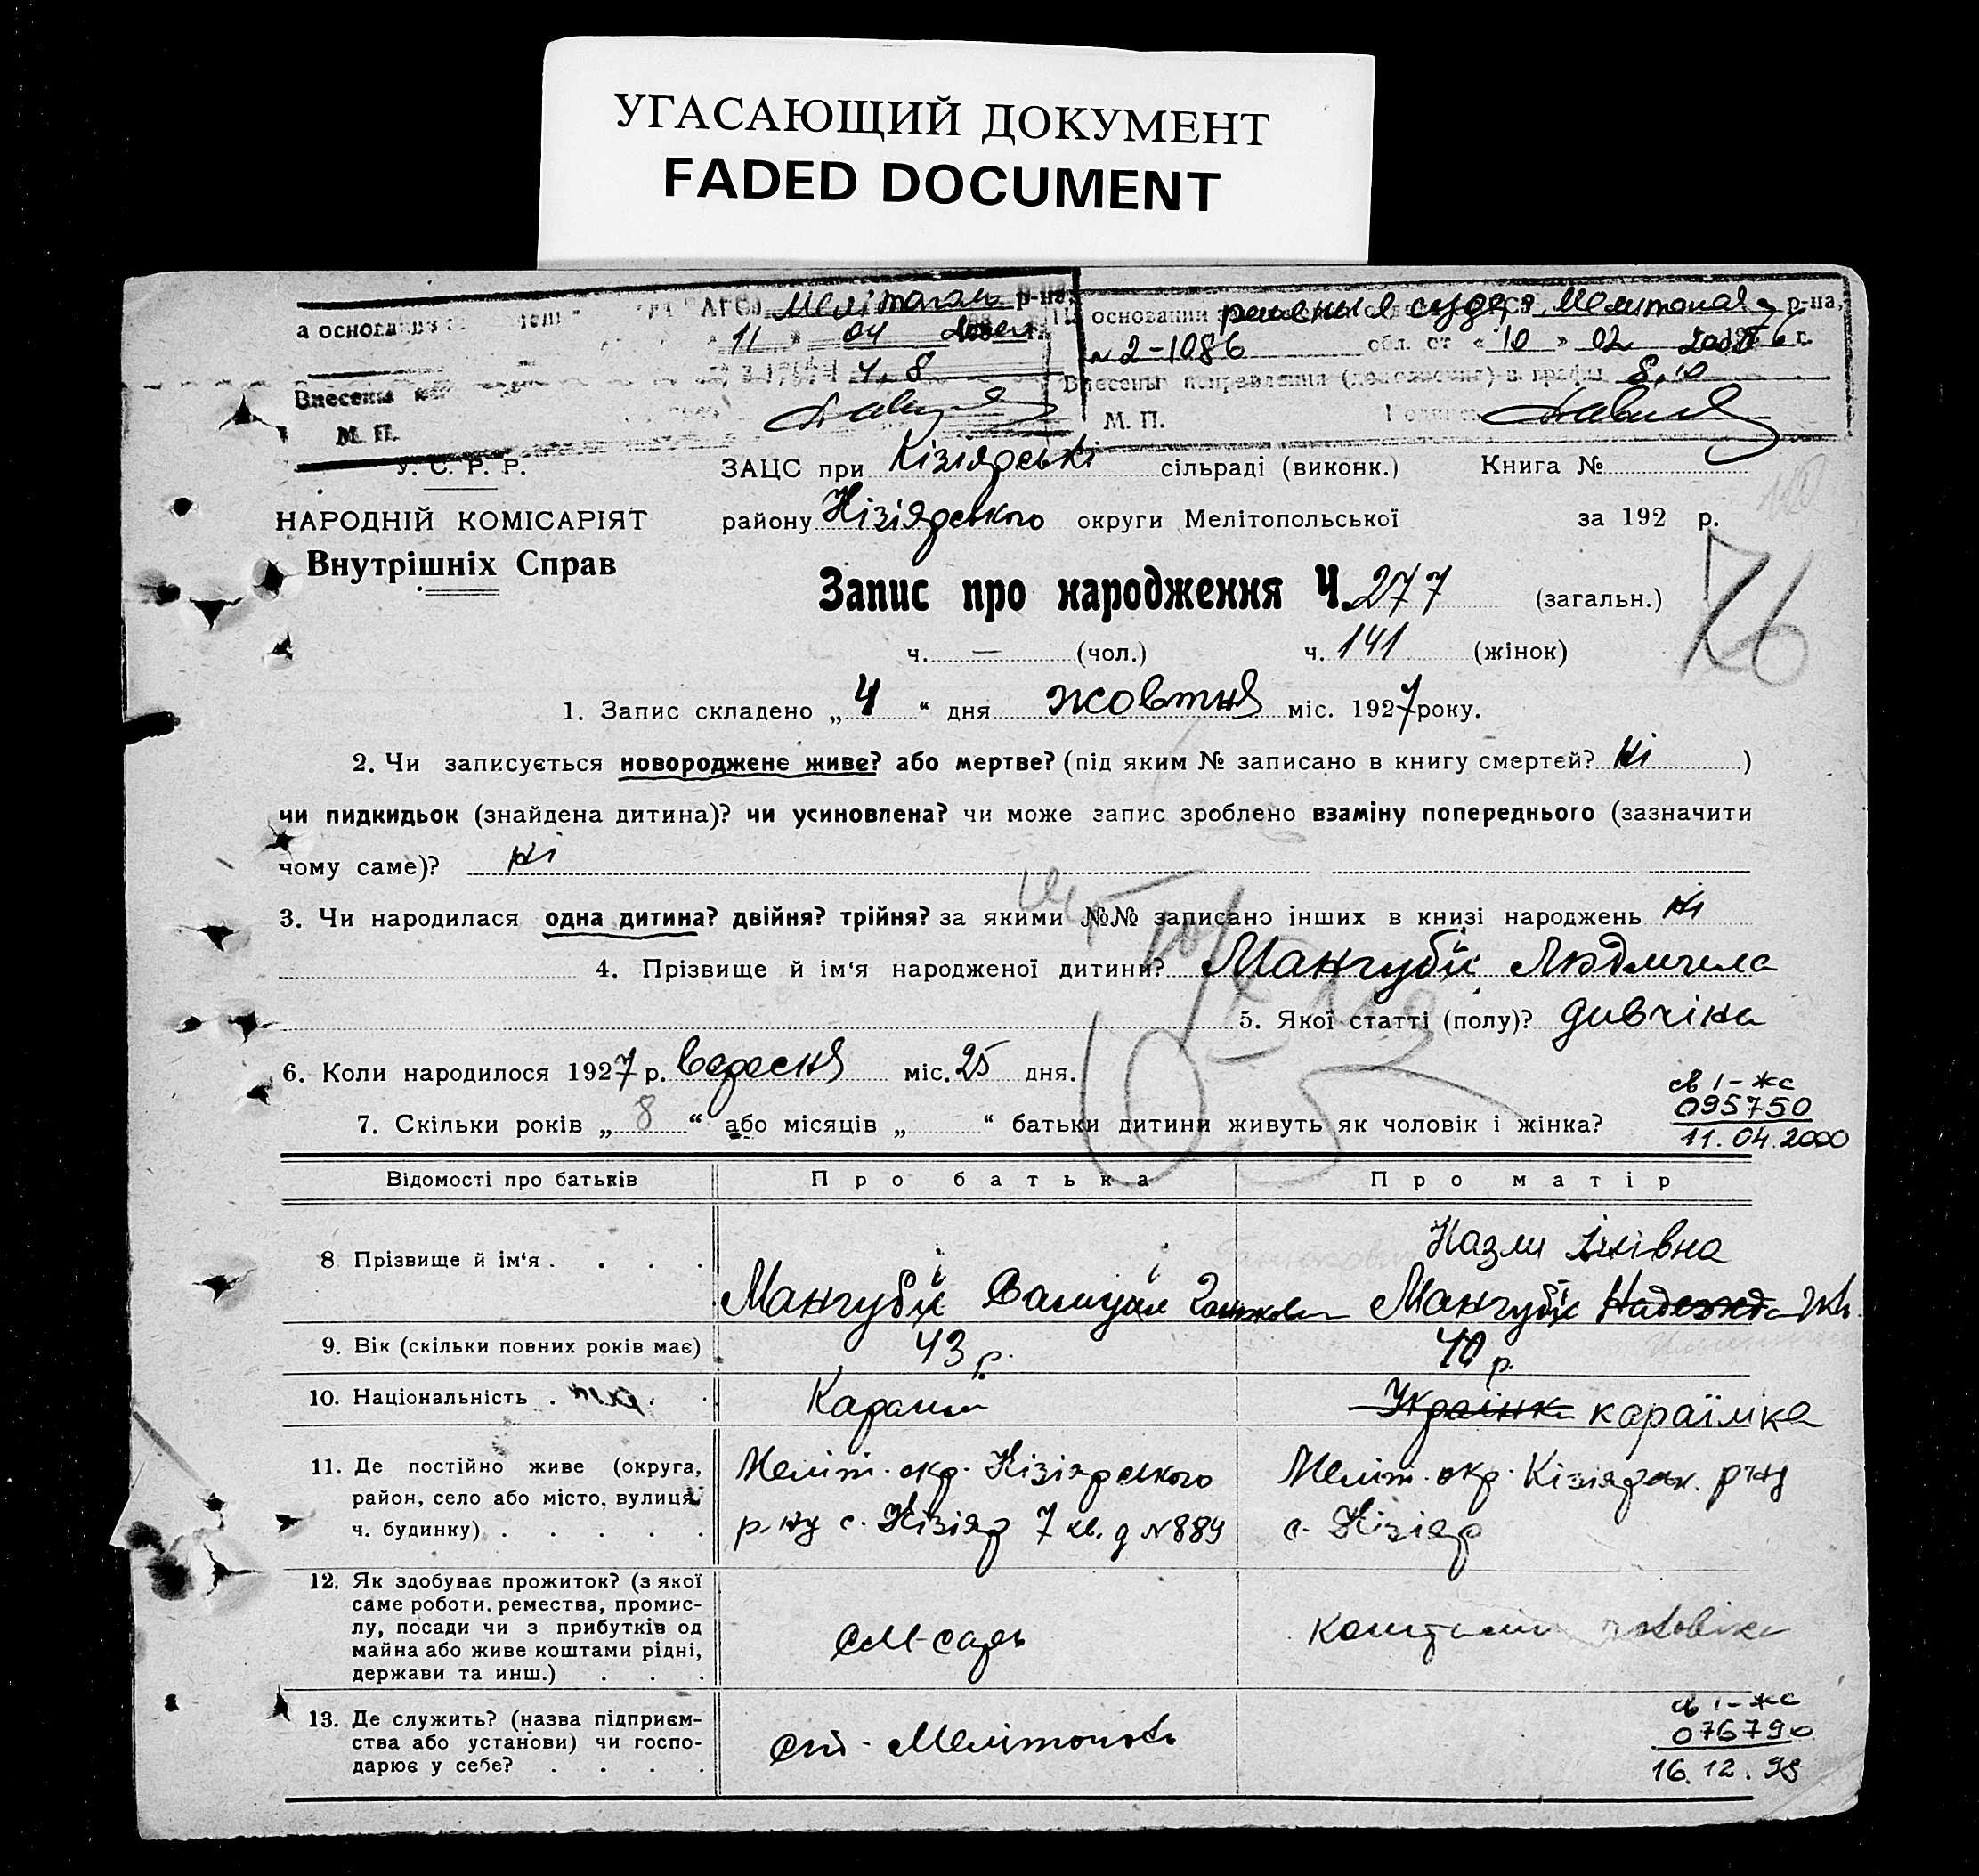 УГАСАЮЩИЙ ДОКУМЕНТ
FADED DOCUMENT
Мелітополь р-на,
11 04
4, 8
Внесены
М. П.
основании решения суда г. Мелитополя р-на,
№ 2-1086 обл. от « 10 » 02 г.
Внесены исправления (дополнения) в графы 8, 10
М. П.
У. С. Р. Р.
НАРОДНІЙ КОМІСАРІЯТ
Внутрішніх Справ
ЗАЦС при Кізіярські сільраді (виконк.) Книга №
району Кізіярського округи Мелітопольської за 192 р.
Запис про народження Ч. 277 (загальн.)
76
ч. — (чол.) ч. 141 (жінок)
1. Запис складено „ 4 “ дня жовтня міс. 1927 року.
2. Чи записується новороджене живе? або мертве? (під яким № записано в книгу смертей? ні )
чи пидкидьок (знайдена дитина)? чи усиновлена? чи може запис зроблено взаміну попереднього (зазначити
чому саме)? ні
3. Чи народилася одна дитина? двійня? трійня? за якими №№ записано інших в книзі народжень ні
4. Прізвище й ім‘я народженої дитини? Мангубії Людмила
5. Якої статті (полу)? дивчіна
6. Коли народилося 1927 р. вересня міс. 25 дня.
7. Скільки років „ 8 “ або місяців „ “ батьки дитини живуть як чоловік і жінка?
св I-жс
095750
11.04.2000
Відомості про батьків Про батька Про матір
8 Прізвище й ім‘я . . . . Мангубі Самуїл Мангубі Надежда
Назли Іллівна
9. Вік (скільки повних років має) 43 р. 40 р.
10. Національність Караим Українка караїмка
11. Де постійно живе (округа,
район, село або місто, вулиця,
ч. будинку) . . . . .
Меліт. окр. Кізіярського
р-ну с. Кізіяр 7 кв. д №889
Меліт. окр. Кізіярськ. р-ну
с. Кізіяр
12. Як здобуває прожиток? (з якої
саме роботи, ремества, промис-
лу, посади чи з прибутків од
майна або живе коштами рідні,
держави та инш.) . . .
13. Де служить? (назва підприєм-
ства або установи) чи госпо-
дарює у себе? . . . .
ст. Мелітополь
св I-жс
076790
16.12.98